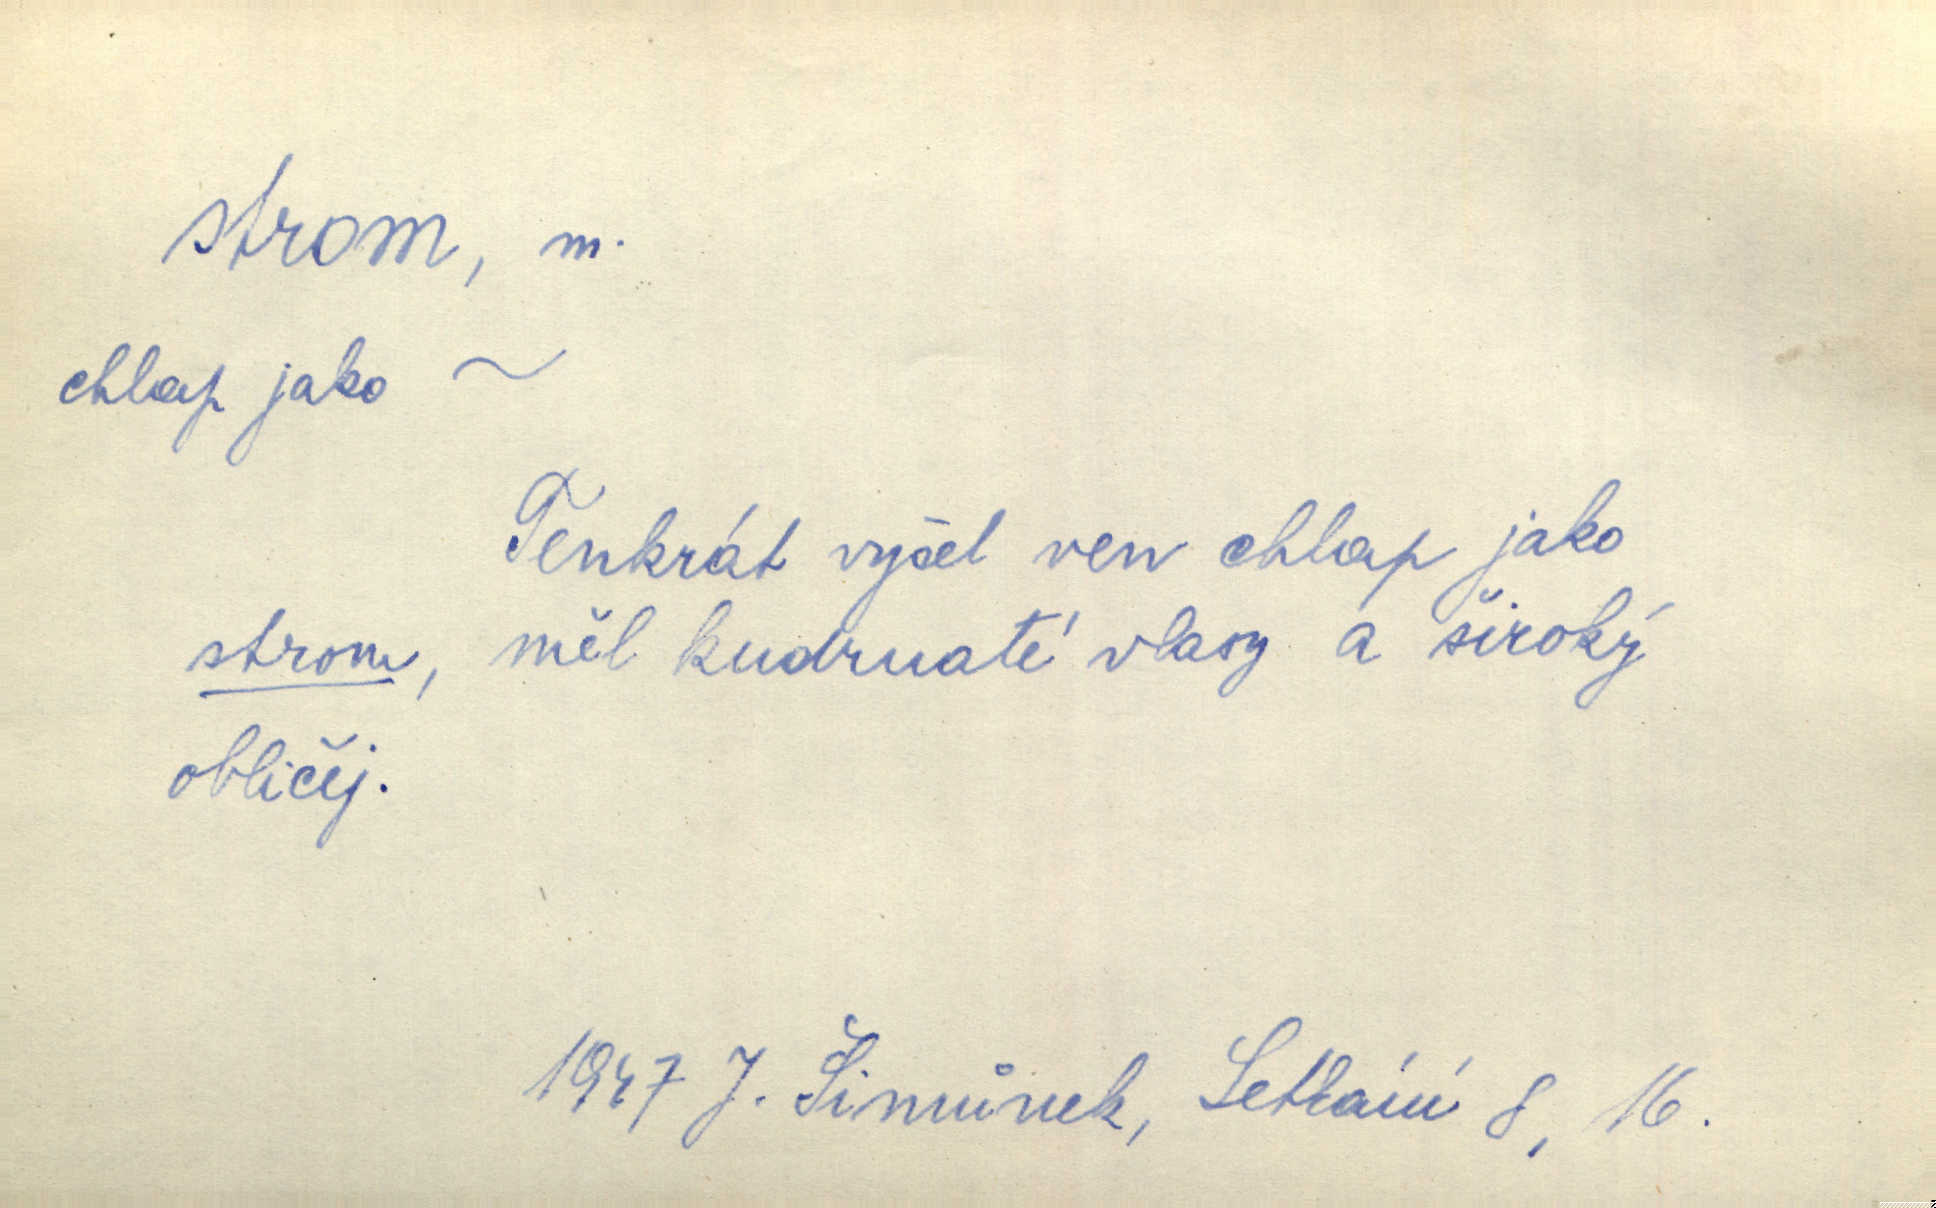 strom, m.
chlap jako ~
Tenkrát vyšel ven chlap jako
strom, měl kudrnaté vlasy a široký
obličej.
1947 J. Šimůnek, Setkání 8, 16.